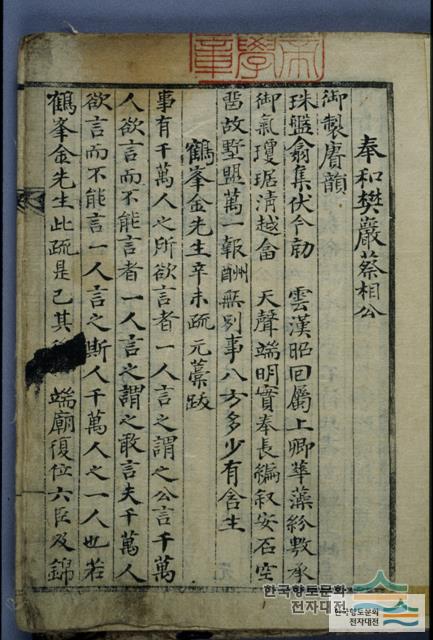 奉和樊巖蔡相公
御製賡韻
珠盤翕集伏令 雲漢昭回屬上卿華藻紛敷承
御氣瓊琚淸越畣 天聲端明實奉長編叙安石空
留故墅盟萬一報酬無別事八方多少有含生
鶴峯金先生辛未疏元藁跋
事有千萬人之所欲言者一人言之謂之公言千萬
人欲言而不能言者一人言之謂之敢言夫千萬人
欲言而不能言一人言之斯人千萬人之一人也若
鶴峯金先生此疏是已其 端廟復位六臣及錦
帝學章
한국향토문화
전자대전
한국향토문화
전자대전